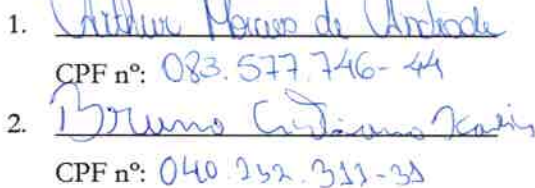 1. Arthur Moraes de Andrade
CPF nº: 083.577.746-44
2. Bruno Cristiano
CPF nº: 040.232.313-31